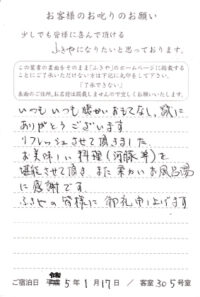 お客様のお叱りのお願い
少しでも皆様に喜んで頂ける
ふきやになりたいと思っております。
この葉書の裏面をそのまま「ふきや」のホームページに掲載する
ことにご了承いただけない方は下記に丸印をして下さい。
「了承できない」
裏面のご住所、お名前は掲載しませんので宜しくお願いいたします。
いつもいつも暖かいおもてなし、誠に
ありがとうございます
リフレッシュさせて頂きました
お美味しい料理(河豚 等)を
堪能させて頂き また 柔かいお風呂湯
に感謝です。
ふきやの皆様に御礼申し上げます
ご宿泊日 5年1月17日 / 客室305号室